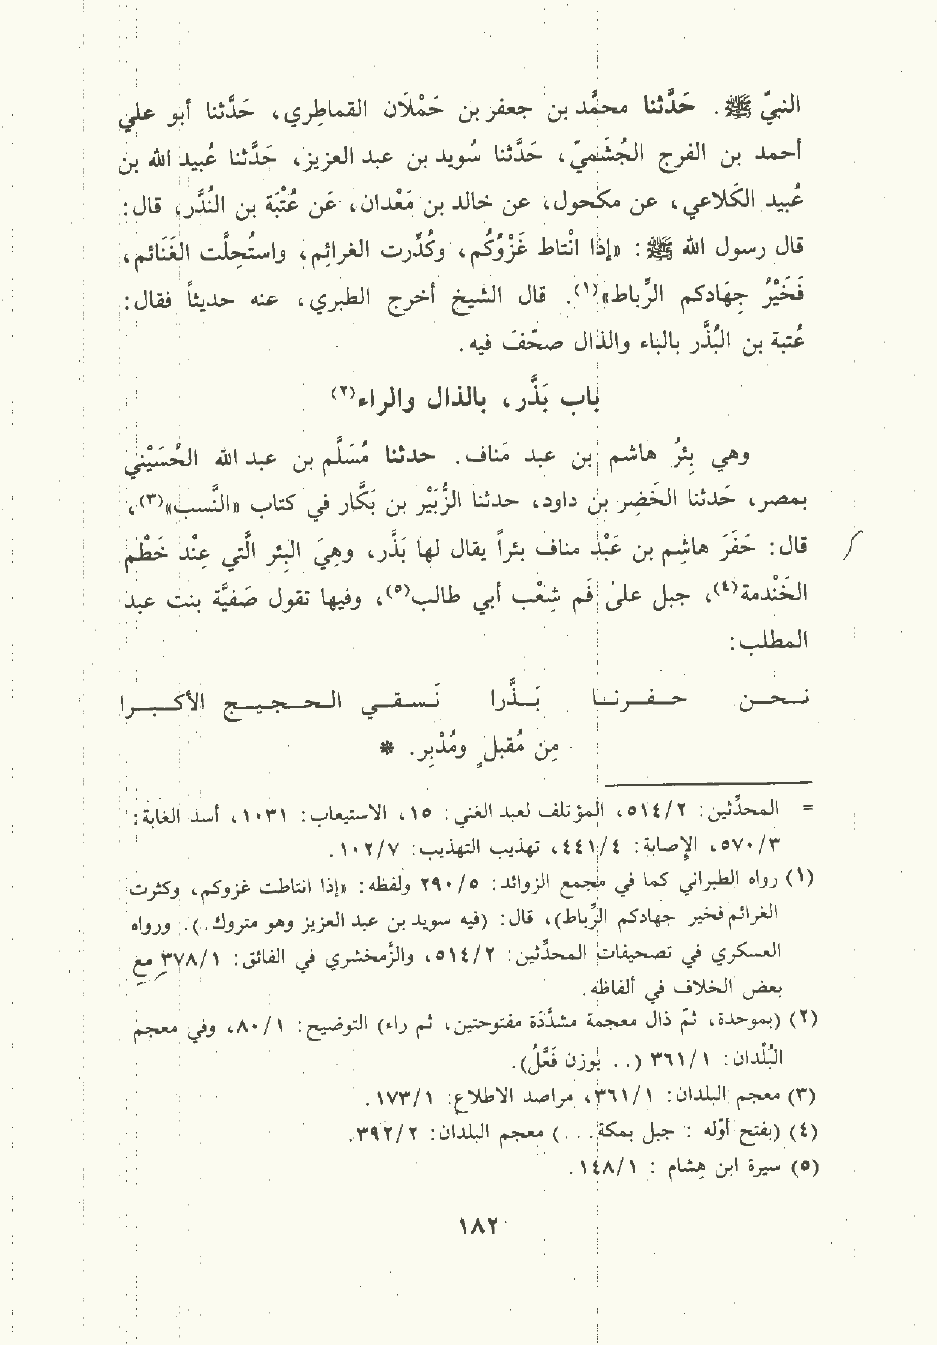 النبيّ ﷺ. حَدَّثنا محمَّد بن جعفر بن حَمْلَان القماطِري، حَدَّثنا أبو علي
أحمد بن الفرج الجُشَميّ، حَدَّثنا سُويد بن عبد العزيز، حَدَّثنا عُبيد الله بن
عُبيد الكَلاعي، عن مكحول، عن خالد بن مَعْدان، عَن عُتْبَة بن النُدَّر، قال:
قال رسول الله ﷺ: «إذا انْتاط غَزْوُكُم، وكُدِّرت الغرائِم، واستُحِلَّت الغَنَائم،
فَخَيْرُ جِهَادكم الرِّباط»(١). قال الشيخ أخرج الطبري، عنه حديثاً فقال:
عُتبة بن البُذَّر بالباء والذال صحّفَ فيه.
باب بَذَّر، بالذال والراء(٢)
وهي بِئرُ هاشم بن عبد مَناف. حدثنا مُسَلَّم بن عبد الله الحُسَيْني
بمصر، حَدثنا الخَضِر بن داود، حدثنا الزُّبَيْر بن بَكَّار في كتاب «النَّسب»(٣)،
قال: حَفَرَ هاشِم بن عَبْد مناف بئراً يقال لها بَذَّر، وهِيَ البِئر التَّي عِنْد خَطْم
الخَنْدمة(٤)، جبل علىٰ فَم شِعْب أبي طالب(٥)، وفيها تقول صَفيَّة بنت عبد
المطلب:
نـحـن حـفـرنـا بَـذَّرا نَـسـقـي الـحـجـيـج الأكـبـرا
مِن مُقبلٍ ومُدْبِر. *
= المحدِّثين: ٥١٤/٢، المؤتلف لعبد الغني: ١٥، الاستيعاب: ١٠٣١، أسد الغابة:
٥٧٠/٣، الإصابة: ٤٤١/٤، تهذيب التهذيب: ١٠٢/٧.
(١) رواه الطبراني كما في مجمع الزوائد: ٢٩٠/٥ ولفظه: «إذا انتاطت غزوكم، وكثرت
الغرائم فخير جهادكم الرِّباط)، قال: (فيه سويد بن عبد العزيز وهو متروك..). ورواه
العسكري في تصحيفات المحدِّثين: ٥١٤/٢، والزَّمخشري في الفائق: ٣٧٨/١ مع
بعض الخلاف في ألفاظه.
(٢) (بموحدة، ثمّ ذال معجمة مشدَّدة مفتوحتين، ثم راء) التوضيح: ٨٠/١، وفي معجم
البُلْدان: ٣٦١/١ (.. بوزن فَعَّلُ).
(٣) معجم البلدان: ٣٦١/١، مراصد الاطلاع: ١٧٣/١.
(٤) (بفتح أوّله : جبل بمكة...) معجم البلدان: ٣٩٢/٢.
(٥) سيرة ابن هِشام : ١٤٨/١.
١٨٢